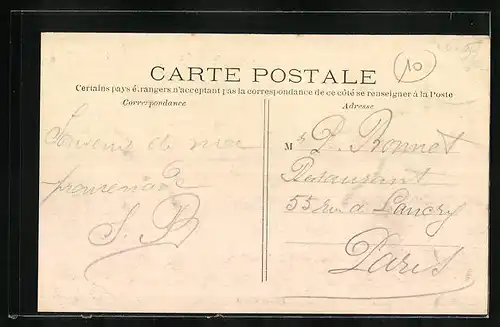 10
CARTE POSTALE
Certains pays étrangers n'acceptant pas la correspondance de ce côté se renseigner à la Poste
Correspondance
Adresse
Souvenir de ma
promenade
S. B
M r P. Bonnet
Restaurant
55 rue de Lancry
Paris